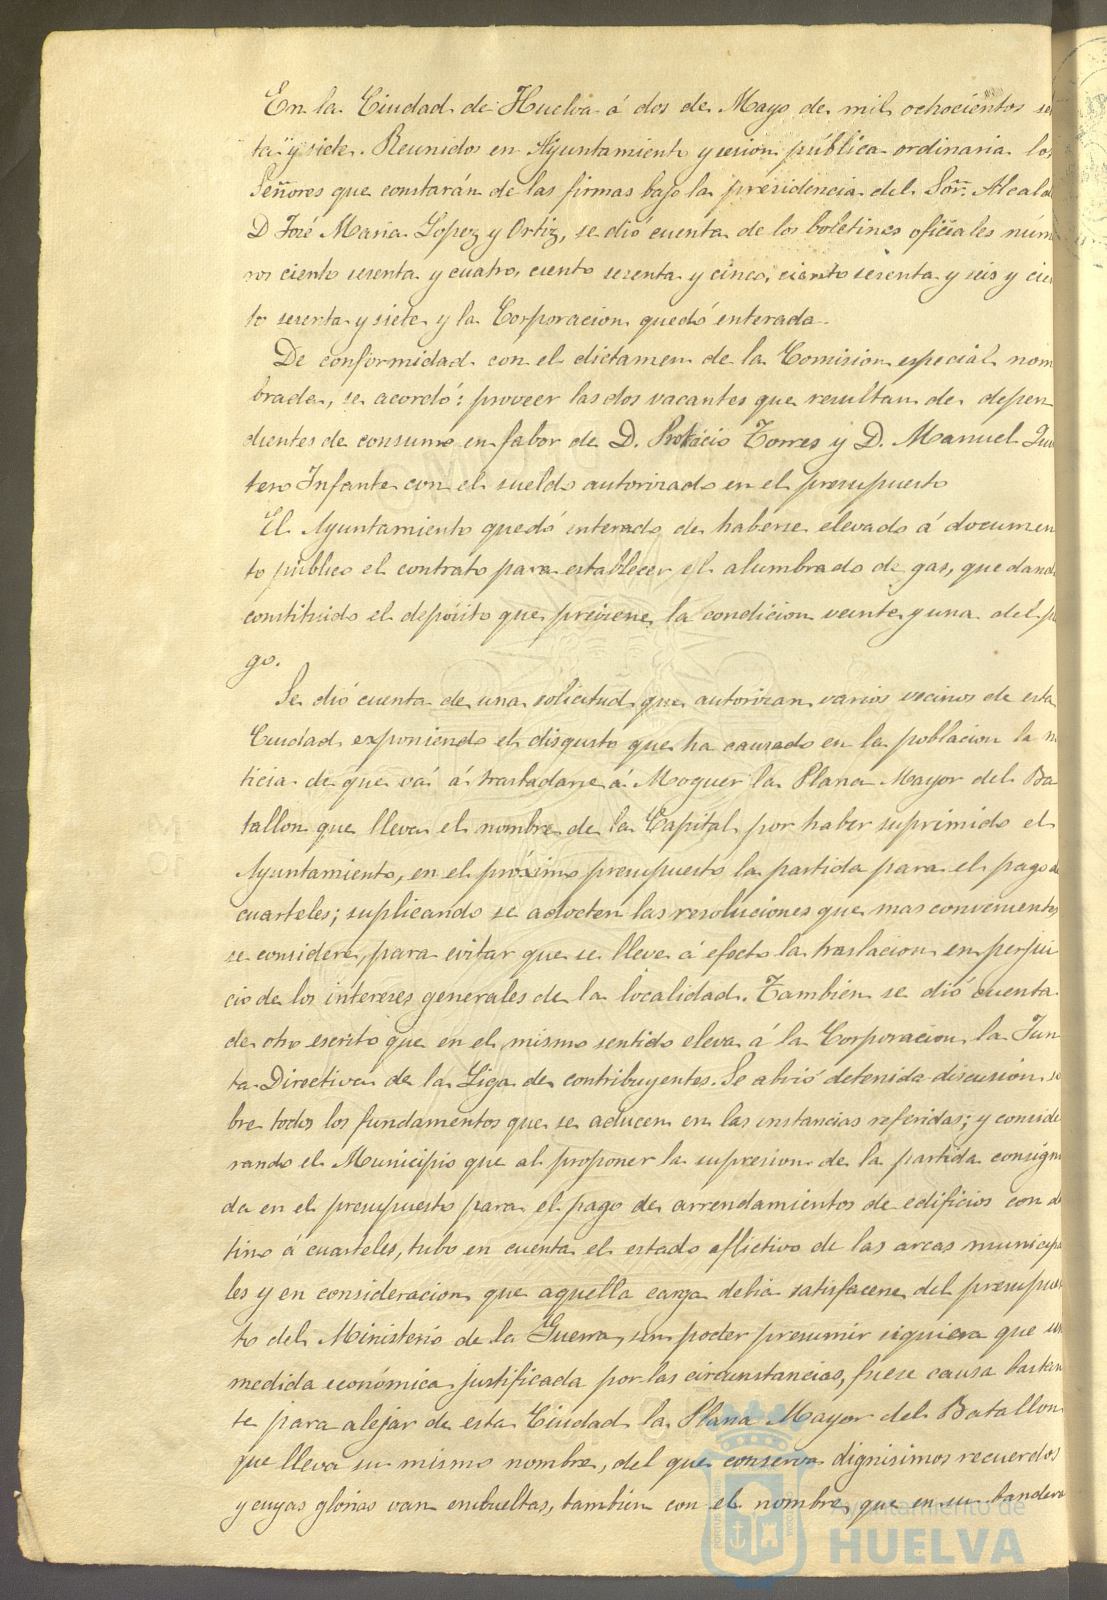 En la Ciudad de Huelva á dos de Mayo de mil ochocientos se
ta y siete. Reunidos en Ayuntamiento y sesion pública ordinaria los
Señores que constarán de las firmas bajo la presidencia del Sor. Alcald
D José Maria Lopez y Ortiz, se dió cuenta de los boletines oficiales núm
ros ciento sesenta y cuatro, ciento sesenta y cinco, ciento sesenta y seis y cie
to sesenta y siete y la Corporacion quedó enterada.
De conformidad con el dictamen de la Comision especial nom
brada, se acordó: proveer las dos vacantes que resultan de depen
dientes de consumo en fabor de D. Protacio Torres y D. Manuel Qui
tero Infante con el sueldo autorizado en el presupuesto
El Ayuntamiento quedó enterado de haberse elevado á documen
to público el contrato para establecer el alumbrado de gas, quedand
constituido el depósito que previene la condicion veinte y una del p
go.
Se dió cuenta de una solicitud que autorizan varios vecinos de esta
Ciudad exponiendo el disgusto que ha causado en la poblacion la n
ticia de que vá á trasladarse á Moguer la Plana Mayor del Ba
tallon que lleva el nombre de la Capital por haber suprimido el
Ayuntamiento, en el próximo presupuesto la partida para el pago d
cuarteles; suplicando se adocten las resoluciones que mas convenientes
se considere, para evitar que se lleve á efecto la traslacion en perjui
cio de los intereses generales de la localidad. Tambien se dió cuenta
de otro escrito que en el mismo sentido eleva á la Corporacion la Jun
ta Directiva de la Liga de contribuyentes. Se abrió detenida discusion so
bre todos los fundamentos que se aducen en las instancias referidas; y conside
rando el Municipio que al proponer la supresion de la partida consigna
da en el presupuesto para el pago de arrendamientos de edificios con d
tino á cuarteles, tubo en cuenta el estado aflictivo de las arcas municipa
les y en consideracion que aquella carga debia satisfacerse del presupues
to del Ministerio de la Guerra, sin poder presumir siquiera que un
medida económica justificada por las circunstancias, fuese causa bastan
te para alejar de esta Ciudad la Plana Mayor del Batallon
que lleva su mismo nombre, del que conserva dignisimos recuerdos
y cuyas glorias van embueltas, tambien con el nombre que en su bandera
Ayuntamiento de
HUELVA